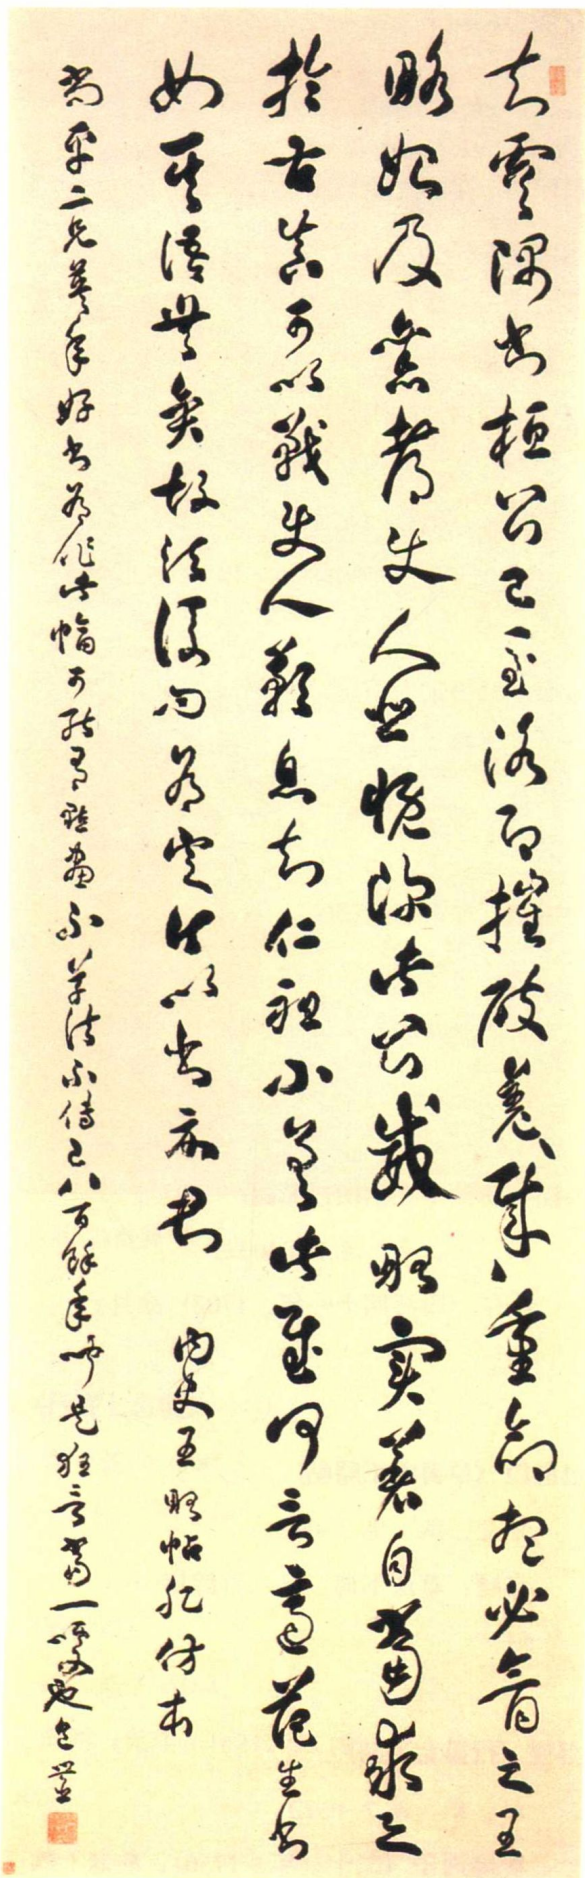 知虞帥書桓公已至洛即摧破羌賊賊重命想必禽之王
略始及舊都使人悲慨深此公威略實著自當求之
於古真可以戰使人歎息知仁祖小差此慰可言適范生書
如其語無異故須後問為定今以書示君 內史王略帖肥仿本
尚平二兄暮年好書為作此幅可能 不草法不傳已八百餘年吁是狂言當一噱也包世臣